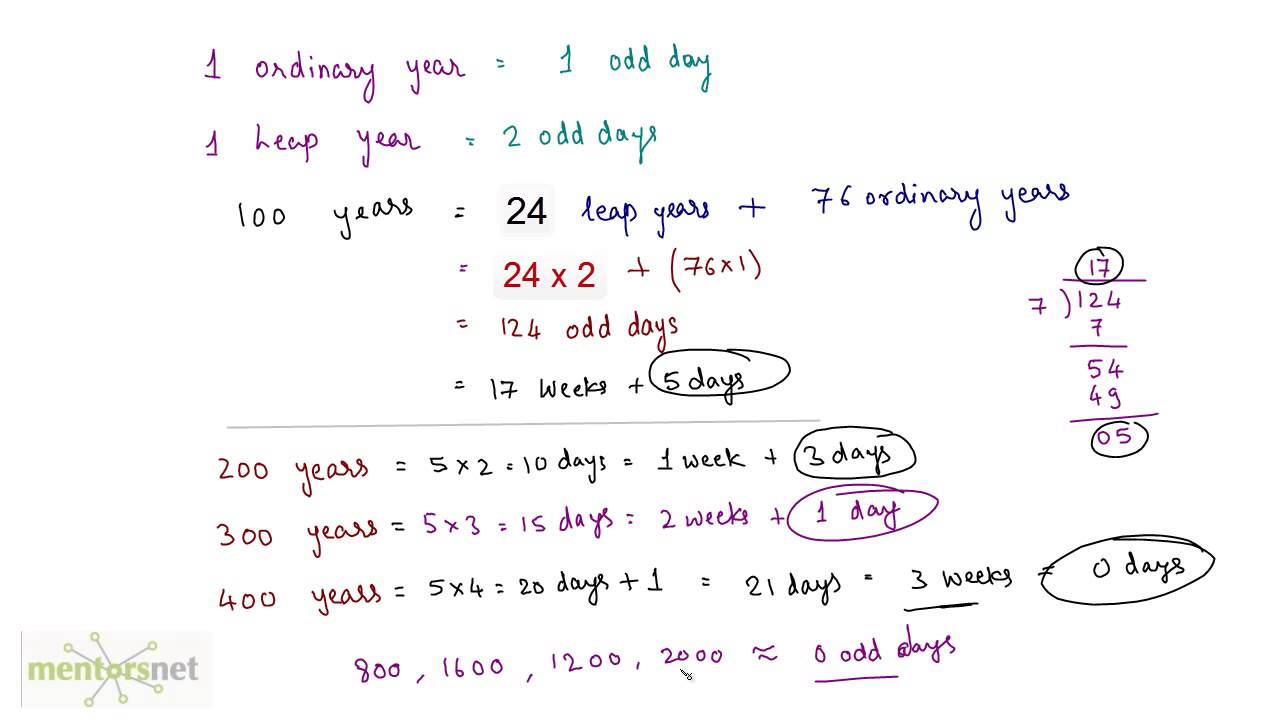 1 ordinary year = 1 odd day
1 Leap year = 2 odd days
100 years = 24 leap years + 76 ordinary years
= 24 x 2 + (76×1)
= 124 odd days
= 17 weeks + 5 days
17
7 ) 124
7
54
49
05
200 years = 5×2 = 10 days = 1 week + 3 days
300 years = 5×3 = 15 days = 2 weeks + 1 day
400 years = 5×4 = 20 days + 1 = 21 days = 3 weeks = 0 days
800 , 1600 , 1200 , 2000 ≈ 0 odd days
mentorsnet